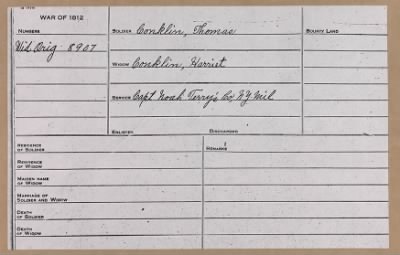 WAR OF 1812
NUMBERS
Wid. Orig. 8907
SOLDIER Conklin, Thomas
WIDOW Conklin, Harriet
SERVICE Capt Noah Terry's Co, NY Mil
ENLISTED
DISCHARGED
BOUNTY LAND
RESIDENCE OF SOLDIER
RESIDENCE OF WIDOW
MAIDEN NAME OF WIDOW
MARRIAGE OF SOLDIER AND WIDOW
DEATH OF SOLDIER
DEATH OF WIDOW
REMARKS